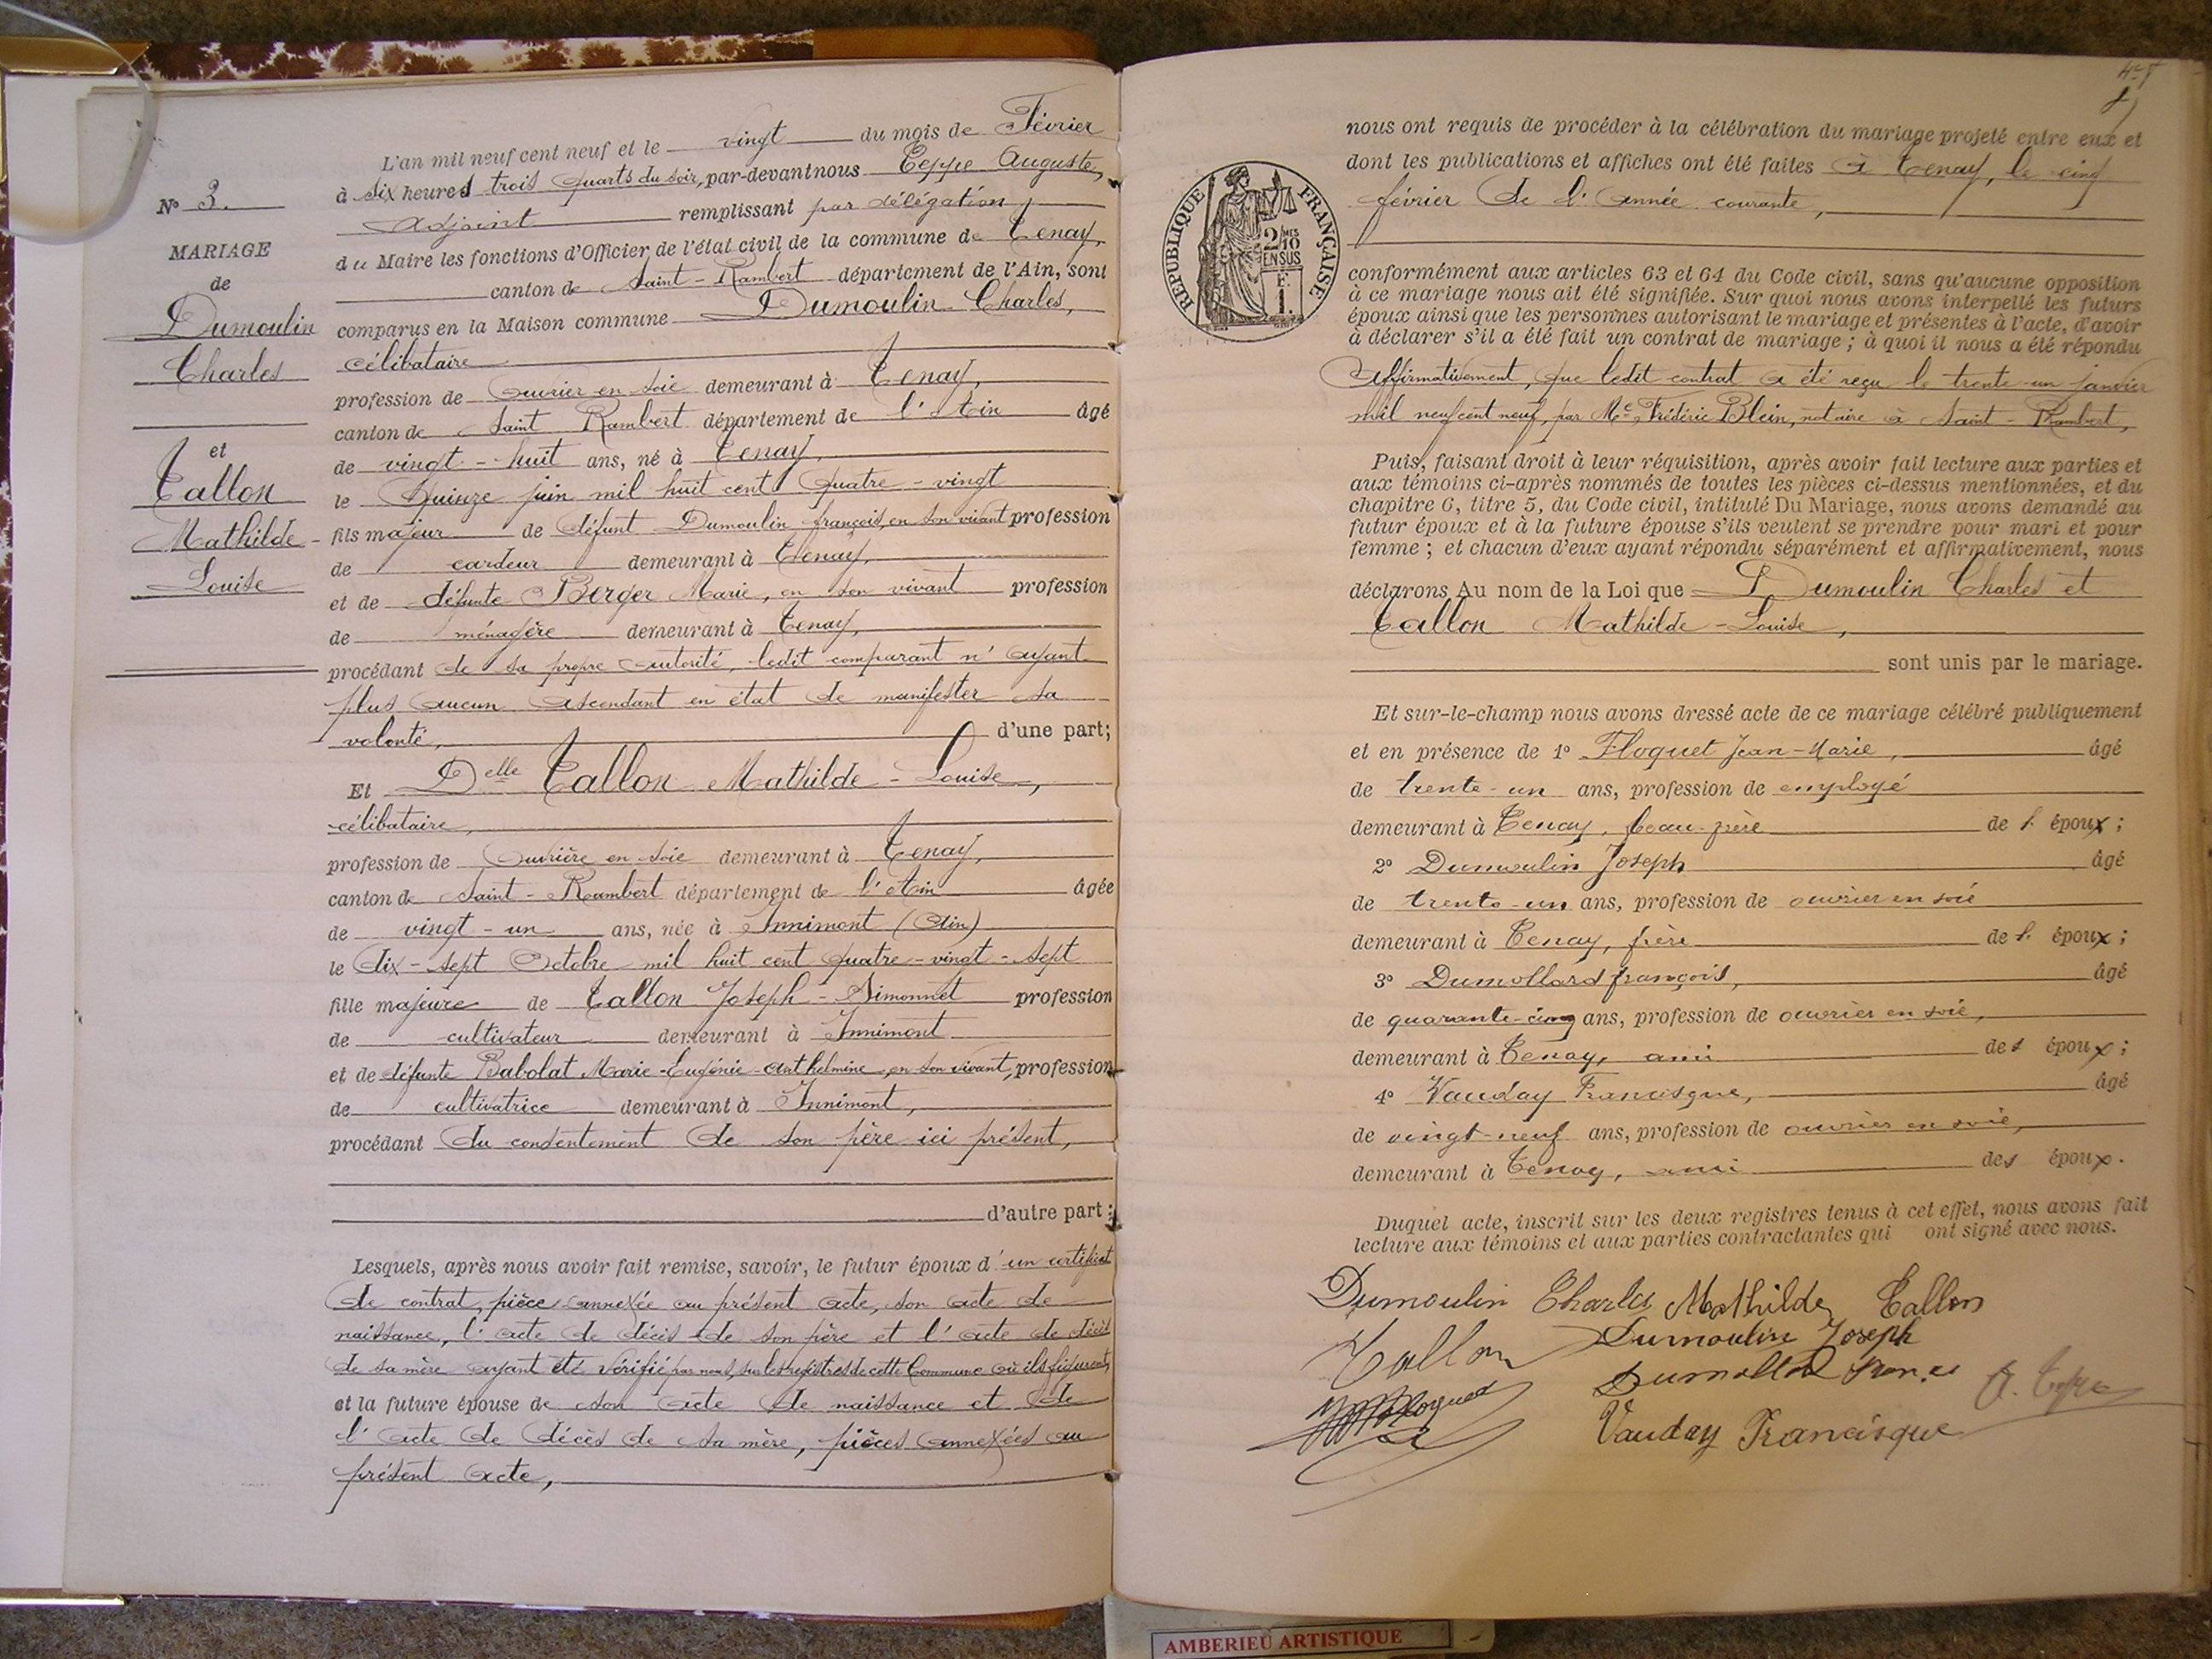 N° 3.
MARIAGE
de
Dumoulin
Charles
et
Tallon
Mathilde-
Louise
L'an mil neuf cent neuf et le vingt du mois de Février
à six heures trois quarts du soir, par-devant nous Teppe Auguste,
Adjoint remplissant par délégation
du Maire les fonctions d'Officier de l'état civil de la commune de Tenay,
canton de Saint-Rambert département de l'Ain, sont
comparus en la Maison commune Dumoulin Charles,
célibataire
profession de ouvrier en soie demeurant à Tenay,
canton de Saint Rambert département de l'Ain âgé
de vingt-huit ans, né à Tenay,
le Quinze juin mil huit cent quatre-vingt
fils majeur de défunt Dumoulin françois, en son vivant profession
de cardeur demeurant à Tenay,
et de défunte Berger Marie, en son vivant profession
de ménagère demeurant à Tenay,
procédant de sa propre autorité, ledit comparant n'ayant
plus aucun ascendant en état de manifester sa
volonté, d'une part;
Et Delle Tallon Mathilde-Louise,
célibataire,
profession de Ouvrière en soie demeurant à Tenay,
canton de Saint-Rambert département de l'Ain âgée
de vingt-un ans, née à Innimont (Ain)
le dix-sept Octobre mil huit cent quatre-vingt-sept
fille majeure de Tallon Joseph-Simonnet profession
de cultivateur demeurant à Innimont
et de défunte Babolat Marie-Eugénie-Anthelmine en son vivant, profession
de cultivatrice demeurant à Innimont,
procédant du consentement de son père ici présent,
d'autre part;
Lesquels, après nous avoir fait remise, savoir, le futur époux d'un certificat
de contrat, pièce annexée au présent acte, son acte de
naissance, l'acte de décès de son père et l'acte de décès
de sa mère ayant été vérifié par nous, sur les registres de cette Commune où ils figurent,
et la future épouse de son acte de naissance et de
l'acte de décès de sa mère, pièces annexées au
présent acte,
RÉPUBLIQUE FRANÇAISE
2/10 MES
EN SUS
1.
nous ont requis de procéder à la célébration du mariage projeté entre eux et
dont les publications et affiches ont été faites à Tenay, le cinq
février de l'année courante,
conformément aux articles 63 et 64 du Code civil, sans qu'aucune opposition
à ce mariage nous ait été signifiée. Sur quoi nous avons interpellé les futurs
époux ainsi que les personnes autorisant le mariage et présentes à l'acte, d'avoir
à déclarer s'il a été fait un contrat de mariage ; à quoi il nous a été répondu
Affirmativement, que ledit contrat a été reçu le trente-un janvier
mil neuf cent neuf, par Me Frédéric Blein, notaire à Saint-Rambert,
Puis, faisant droit à leur réquisition, après avoir fait lecture aux parties et
aux témoins ci-après nommés de toutes les pièces ci-dessus mentionnées, et du
chapitre 6, titre 5, du Code civil, intitulé Du Mariage, nous avons demandé au
futur époux et à la future épouse s'ils veulent se prendre pour mari et pour
femme ; et chacun d'eux ayant répondu séparément et affirmativement, nous
déclarons Au nom de la Loi que Dumoulin Charles et
Tallon Mathilde-Louise,
sont unis par le mariage.
Et sur-le-champ nous avons dressé acte de ce mariage célébré publiquement
et en présence de 1° Floquet Jean-Marie, âgé
de trente-un ans, profession de employé
demeurant à Tenay, beau-frère de l. époux ;
2° Dumoulin Joseph âgé
de trente-un ans, profession de ouvrier en soie
demeurant à Tenay, frère de l. époux ;
3° Dumollard françois, âgé
de quarante-cinq ans, profession de ouvrier en soie,
demeurant à Tenay, ami des époux ;
4° Vauday Francisque, âgé
de vingt-neuf ans, profession de ouvrier en soie,
demeurant à Tenay, ami des époux.
Duquel acte, inscrit sur les deux registres tenus à cet effet, nous avons fait
lecture aux témoins et aux parties contractantes qui ont signé avec nous.
Dumoulin Charles Mathilde Tallon
Tallon Dumoulin Joseph
Floquet
Vauday Francisque
AMBERIEU ARTISTIQUE